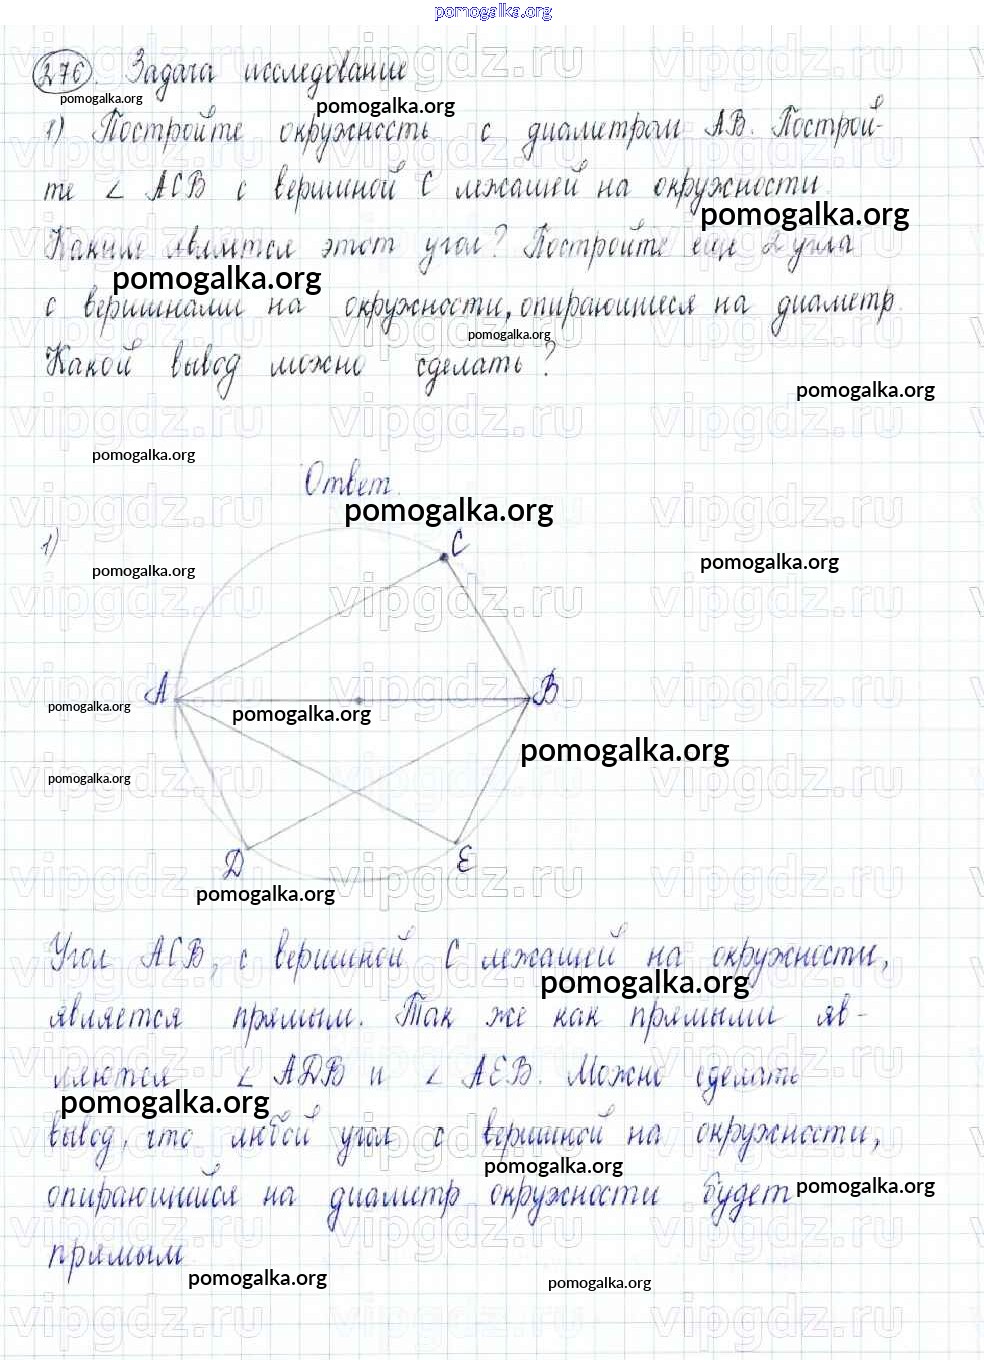 pomogalka.org
276. Задача исследование
pomogalka.org pomogalka.org
1) Постройте окружность с диаметром АВ. Построй-
те ∠ АСВ с вершиной С лежащей на окружности.
pomogalka.org
Каким является этот угол? Постройте еще 2 угла
pomogalka.org
с вершинами на окружности, опирающиеся на диаметр.
pomogalka.org
Какой вывод можно сделать?
pomogalka.org
vipgdz.ru vipgdz.ru vipgdz.ru
pomogalka.org
Ответ.
pomogalka.org
1)
С
pomogalka.org
pomogalka.org
А
В
pomogalka.org
pomogalka.org
pomogalka.org
pomogalka.org
D
E
pomogalka.org
Угол АСВ, с вершиной С лежащей на окружности,
pomogalka.org
является прямым. Так же как прямыми яв-
ляются ∠ ADB и ∠ AEB. Можно сделать
pomogalka.org
вывод, что любой угол с вершиной на окружности,
pomogalka.org
опирающийся на диаметр окружности будет
pomogalka.org
прямым
pomogalka.org
pomogalka.org